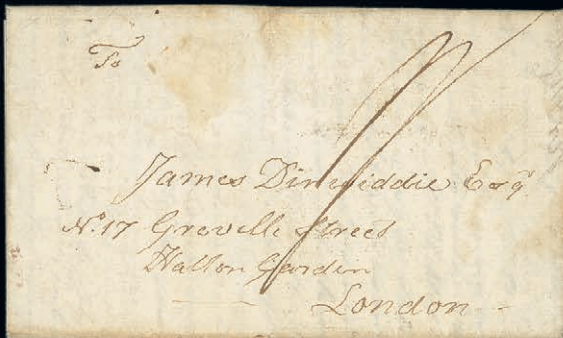 To
James Dinwiddie Esqr
No. 17 Greville Street
Hatton Garden
London